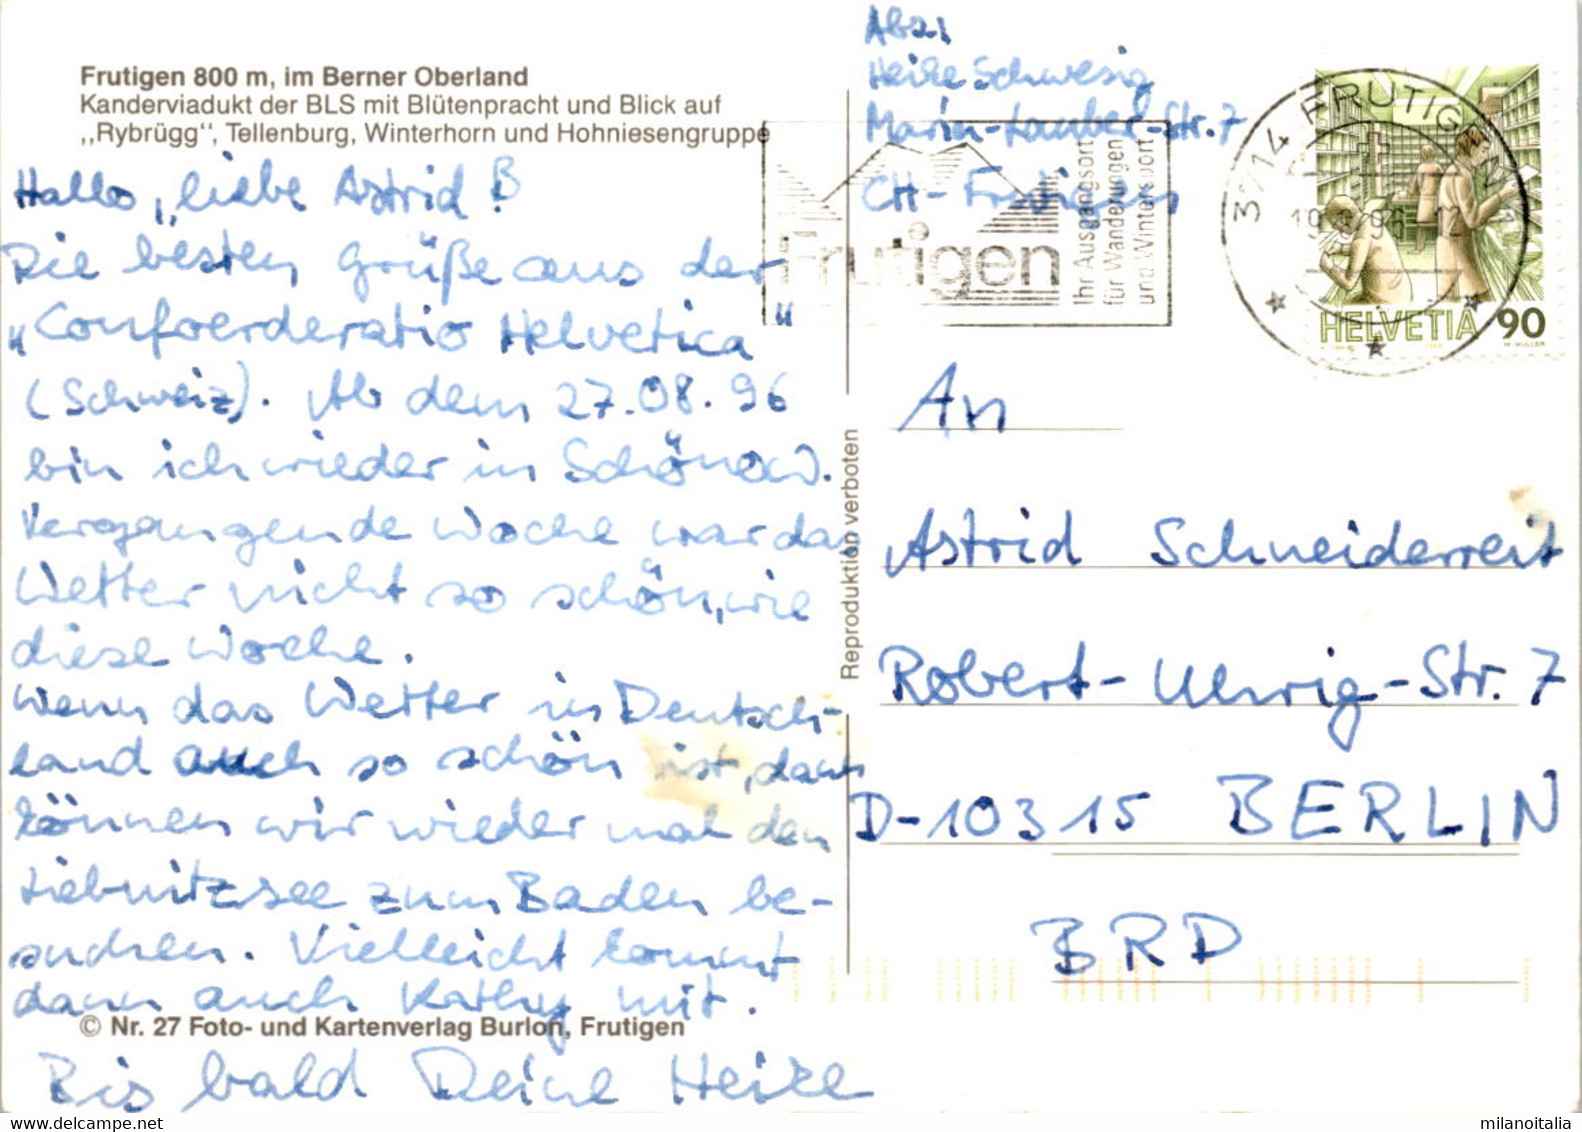 Frutigen 800 m, im Berner Oberland
Kanderviadukt der BLS mit Blütenpracht und Blick auf
,,Rybrügg“, Tellenburg, Winterhorn und Hohniesengruppe
Hallo, liebe Astrid!
Die besten Grüße aus der
„Confoerderatio Helvetica"
(Schweiz). Ab dem 27.08.96
bin ich wieder in Schönow.
Vergangende Woche war das
Wetter nicht so schön, wie
diese Woche.
Wenn das Wetter in Deutsch-
land auch so schön ist, dann
können wir wieder mal den
Liebnitzsee zum Baden be-
suchen. Vielleicht kommt
dann auch Kathy mit.
© Nr. 27 Foto- und Kartenverlag Burlon, Frutigen
Bis bald Deine Heike
Reproduktion verboten
Abs.:
Heike Schwesig
Maria-Lauber-Str. 7
CH- Frutigen
Frutigen
Ihr Ausgangsort
für Wanderungen
und Wintersport
3714 FRUTIGEN
HELVETIA 90
H. MÜLLER
An
Astrid Schneidereit
Robert-Uhrig-Str. 7
D-10315 BERLIN
BRD
milanoitalia